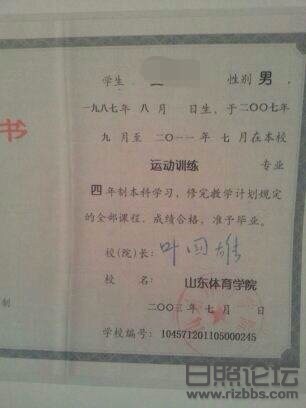 学生 性别 男，
一九八七年 八月 日生，于二〇〇七年
九月至二〇一一年 七月在本校
运动训练 专业
四年制本科学习，修完教学计划规定
的全部课程，成绩合格，准予毕业。
书
校（院）长：叶国雄
校 名： 山东体育学院
二〇〇三年 七月 日
制
学校编号：104571201105000245
日照论坛
www.rizbbs.com